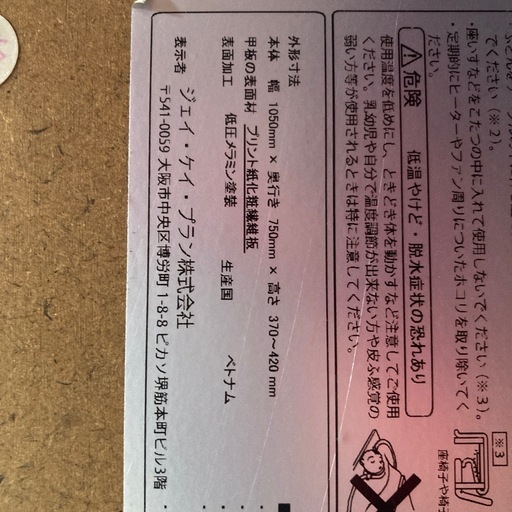 ふとんをテーブル
てください（※2）。
・座いすなどをこたつの中に入れて使用しないでください（※3）。
・定期的にヒーターやファン周りについたホコリを取り除いてく
ださい。
※3
座椅子や椅子
⚠危険 低温やけど・脱水症状の恐れあり
使用温度を低めにし、ときどき体を動かすなど注意してご使用
ください。乳幼児や自分で温度調節が出来ない方や皮ふ感覚の
弱い方等が使用されるときは特に注意してください。
外形寸法
本体 幅 1050mm × 奥行き 750mm × 高さ 370～420 mm
甲板の表面材 プリント紙化粧繊維板
表面加工 低圧メラミン塗装 生産国 ベトナム
表示者 ジェイ・ケイ・プラン株式会社
〒541-0059 大阪市中央区博労町 1-8-8 ピカソ堺筋本町ビル3階